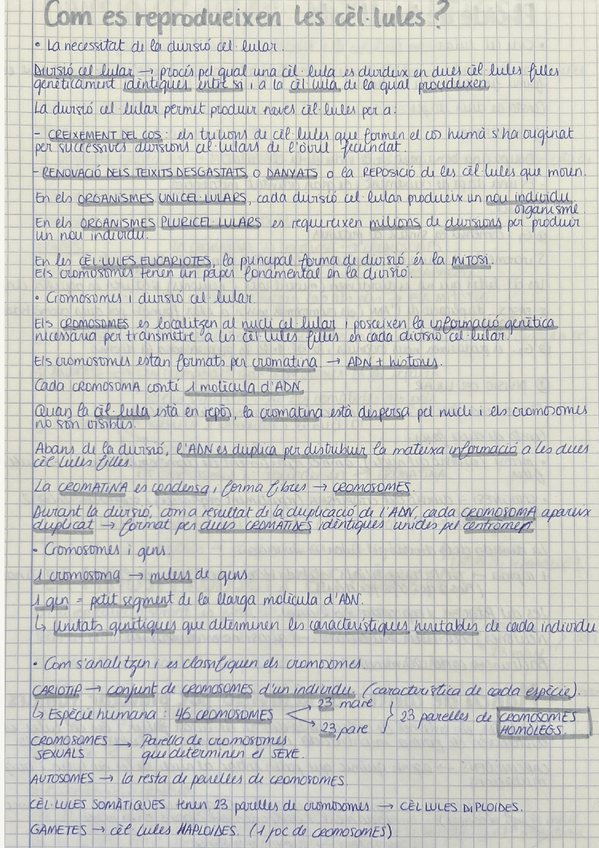 Com es reprodueixen les cèl·lules?
• La necessitat de la divisió cel·lular.
Divisió cel·lular → procés pel qual una cèl·lula es divideix en dues cèl·lules filles
genèticament idèntiques entre si i a la cèl·lula de la qual procedeixen.
La divisió cel·lular permet produir noves cèl·lules per a:
- CREIXEMENT DEL COS: els trilions de cèl·lules que formen el cos humà s'ha originat
per successives divisions cel·lulars de l'òvul fecundat.
- RENOVACIÓ DELS TEIXITS DESGASTATS O DANYATS o la REPOSICIÓ de les cèl·lules que moren.
En els ORGANISMES UNICEL·LULARS, cada divisió cel·lular produeix un nou individu
organisme
En els ORGANISMES PLURICEL·LULARS es requereixen milions de divisions per produir
un nou individu.
En les CÈL·LULES EUCARIOTES, la principal forma de divisió és la MITOSI.
Els cromosomes tenen un paper fonamental en la divisió
• Cromosomes i divisió cel·lular
Els CROMOSOMES es localitzen al nucli cel·lular i posseixen la informació genètica
necessària per transmetre a les cèl·lules filles en cada divisió cel·lular
Els cromosomes estan formats per cromatina → ADN + histones.
Cada CROMOSOMA conté 1 molècula d'ADN
Quan la cèl·lula està en repòs, la cromatina està dispersa pel nucli i els cromosomes
no són visibles.
Abans de la divisió, l'ADN es duplica per distribuir la mateixa informació a les dues
cèl·lules filles
La CROMATINA es condensa i forma fibres → CROMOSOMES.
Durant la divisió, com a resultat de la duplicació de l'ADN, cada CROMOSOMA apareix
duplicat → format per dues CROMATINES idèntiques unides pel centròmer
• Cromosomes i gens.
1 cromosoma → milers de gens
1 gen = petit segment de la llarga molècula d'ADN.
↳ Unitats genètiques que determinen les característiques heretables de cada individu
• Com s'analitzen i es classifiquen els cromosomes
CARIOTIP → conjunt de CROMOSOMES d'un individu (característica de cada espècie).
↳ Espècie humana: 46 CROMOSOMES < 23 mare 23 pare } 23 parelles de CROMOSOMES HOMÒLEGS.
CROMOSOMES SEXUALS → Parella de cromosomes que determinen el SEXE.
AUTOSOMES → la resta de parelles de CROMOSOMES.
CÈL·LULES SOMÀTIQUES tenen 23 parelles de cromosomes → CÈL·LULES DIPLOIDES.
GAMETES → cèl·lules HAPLOIDES. (1 joc de CROMOSOMES)